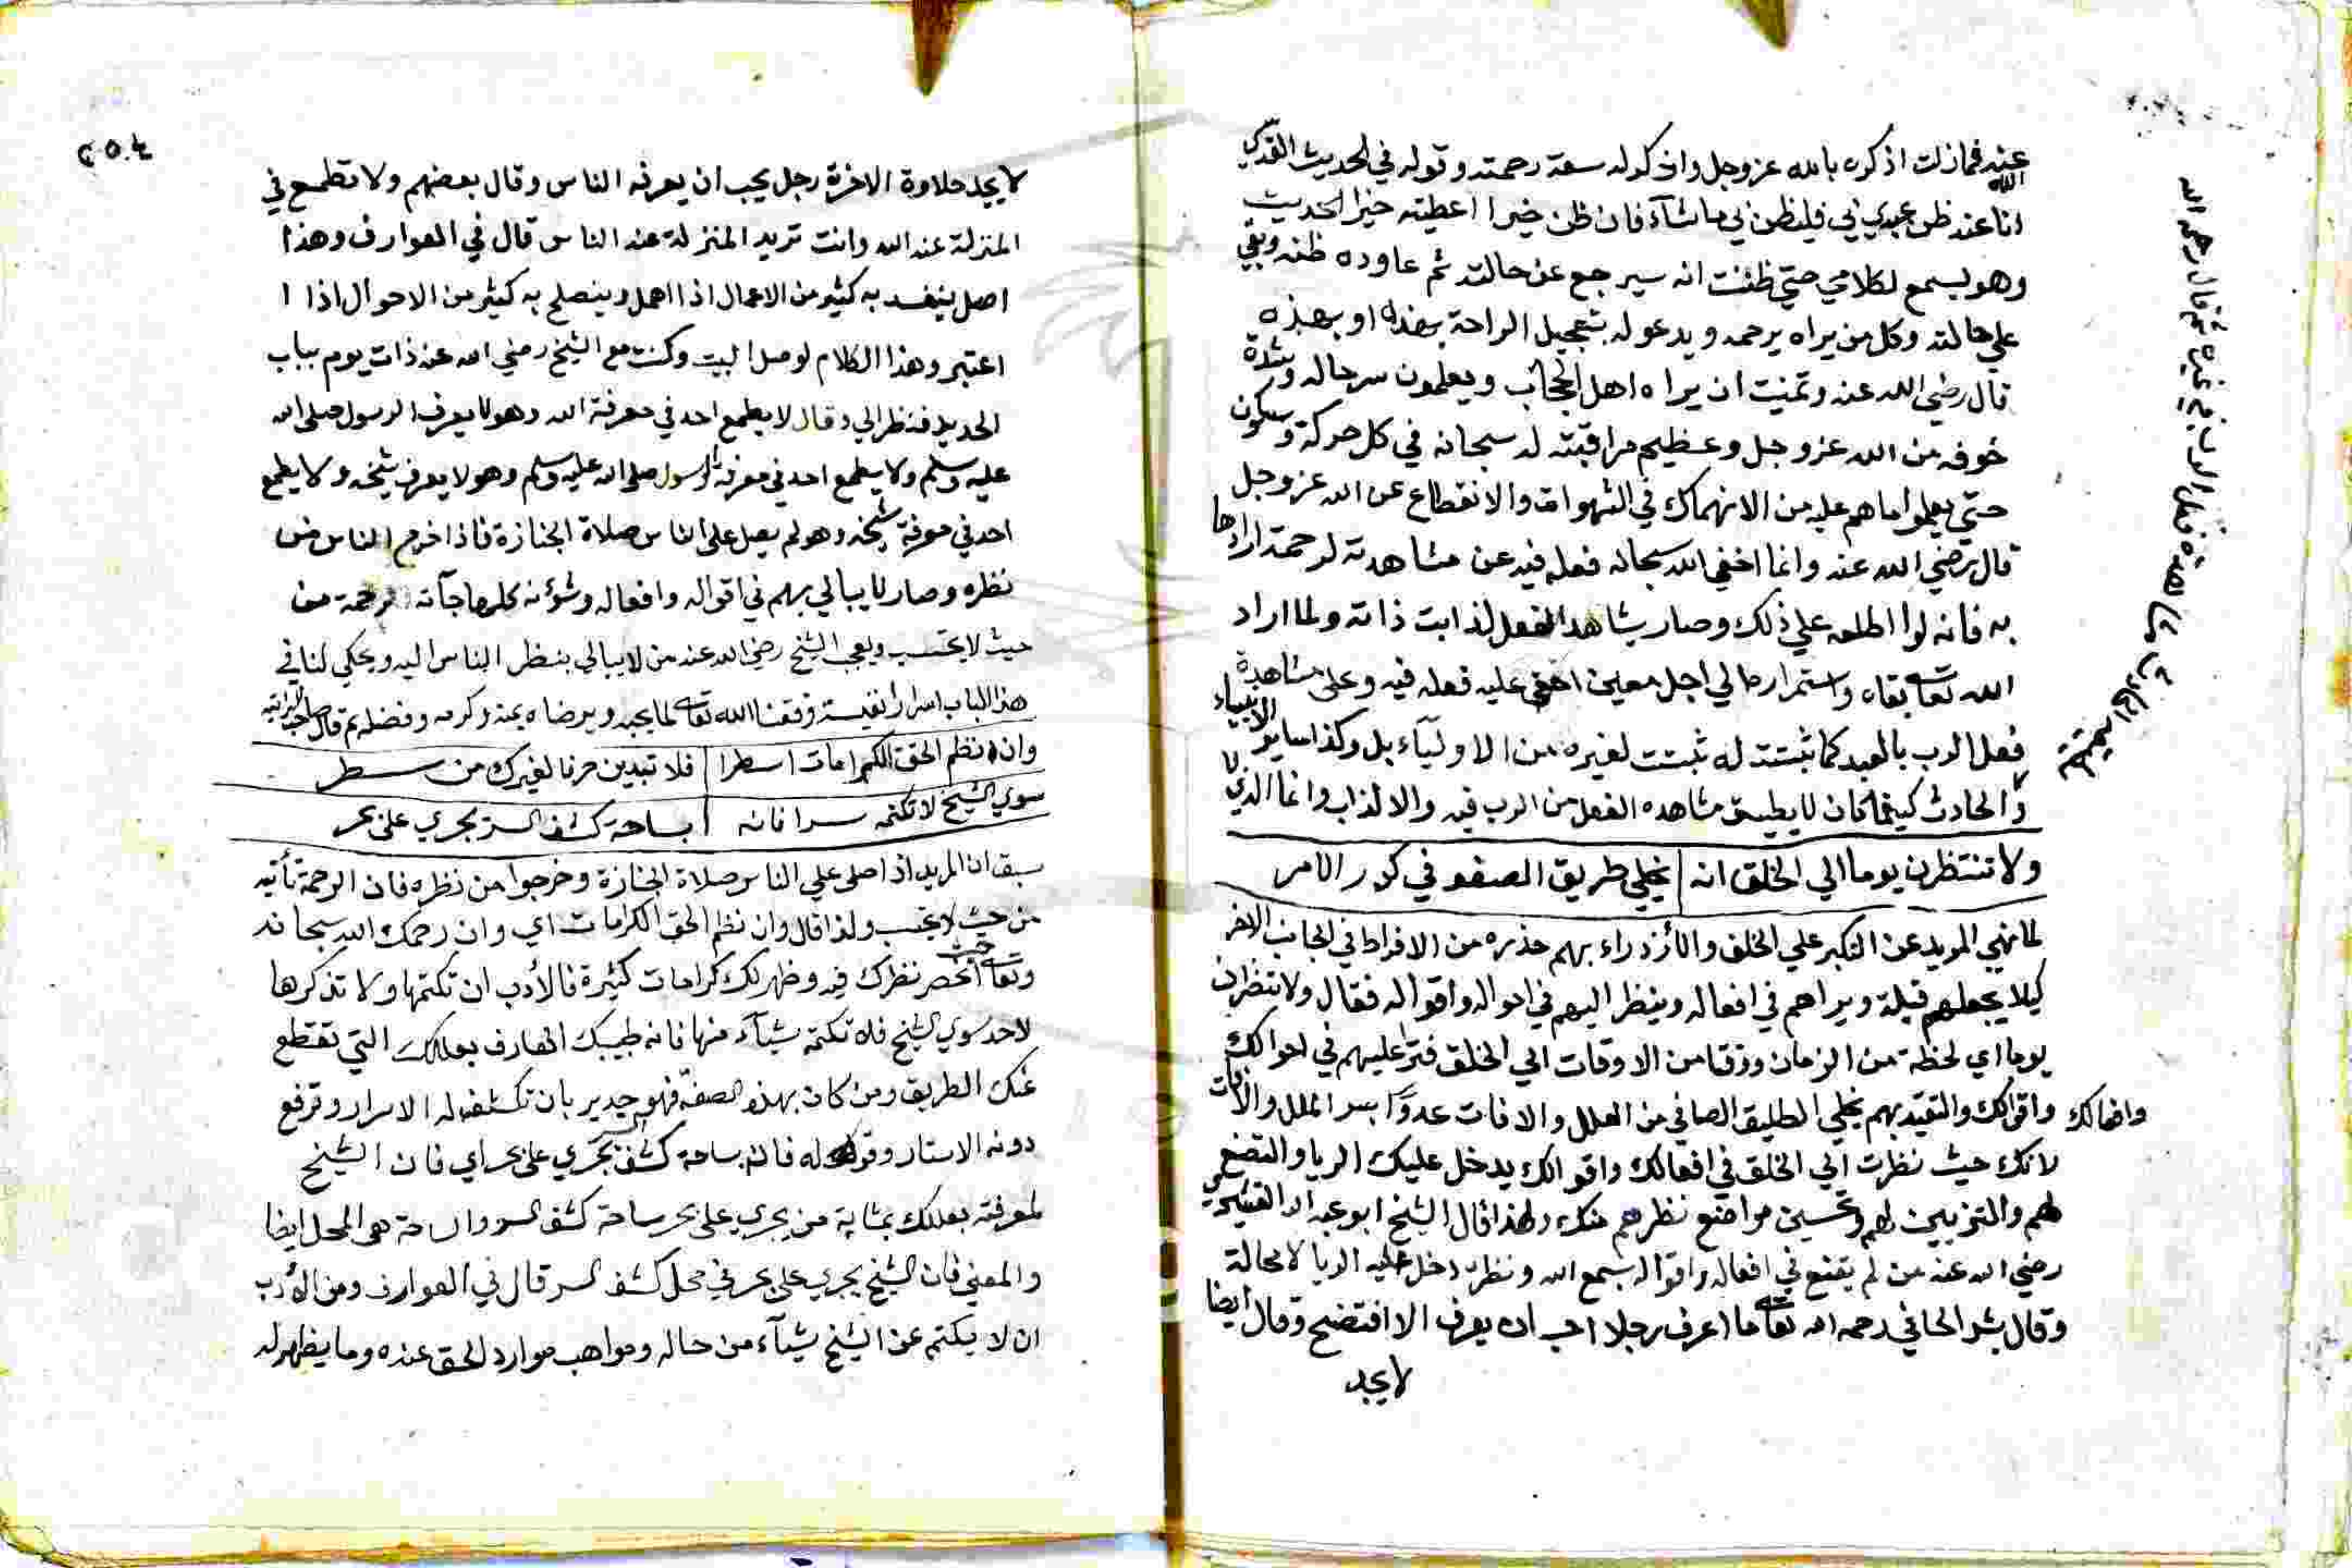 عنه فمازلت اذكره بالله عز وجل واذكر له سعة رحمته وقوله في الحديث القدسي
انا عند ظن عبدي بي فليظن بي ما شآء فان ظن خيرا اعطيته خيرا الحديث
وهو يسمع لكلامي حتي ظننت انه سيرجع عن حالته ثم عاوده ظنه وبقي
علي حالته وكل من يراه يرحمه ويدعو له بتعجيل الراحة بهذه او بهذه
قال رضي الله عنه وتمنيت ان يراه اهل الحجاب ويعلمون سر حاله وشدة
خوفه من الله عز وجل وعظيم مراقبته له سبحانه في كل حركة وسكون
حتي يعلموا ما هم عليه من الانهماك في الشهوات والانقطاع عن الله عز وجل
قال رضي الله عنه وانما اخفي الله سبحانه فعله فيه عن مشاهدته لرحمة ارادها
به فانه لو اطلعه علي ذلك وصار يشاهد الفعل لذابت ذاته ولما اراد
الله تعالى بقاه واستمراره الي اجل معين اخفي عليه فعله فيه وعلى مشاهدة
فعل الرب بالعبد كما ثبتت له ثبتت لغيره من الاوليآء بل وكذا ساير الانبياء
والحادث كيفما كان لا يطيق مشاهده الفعل من الرب فيه والا لذاب وانما الذي لا
ولا تنتظرن يوما الي الخلق انه | يخلي طريق الصفو في كدر الامر
لما نهي المريد عن التكبر علي الخلق والازدراء بهم حذره من الافراط في الجانب الاخر
كيلا يجعلهم قبلة ويراهم في افعاله وينظر اليهم في احواله واقواله فقال ولا تنظرن
يوما اي لحظة من الزمان ووقتا من الاوقات الي الخلق فتراعليهم في احوالك
وافعالك واقوالك والتقيد بهم يخلي الطريق الصافي من العلل والافات
لانك حيث نظرت الي الخلق في افعالك واقوالك يدخل عليك الريا والتصنع
لهم والتزيين لهم وتحسين مواضع نظرهم منك ولهذا قال الشيخ ابو عبد الله القرشي
رضي الله عنه من لم يقنع في افعاله واقواله بسمع الله ونظره دخل عليه الريا لا محالة
وقال بشر الحافي رحمه الله تعالى ما اعرف رجلا احب ان يعرف الا افتضح وقال ايضا
لا يجد
٢٥٤
لا يجد حلاوة الاخرة رجل يحب ان يعرفه الناس وقال بعضهم ولا تطمع في
المنزلة عند الله وانت تريد المنزلة عند الناس قال في العوارف وهذا
اصل ينفسد به كثير من الاعمال اذا اهمل وينصلح به كثير من الاحوال اذا ا
اعتبر وهذا الكلام لوصل البيت وكنت مع الشيخ رضي الله عنه ذات يوم بباب
الحديد فنظر الي وقال لا يطمع احد في معرفة الله وهو لا يعرف الرسول صلى الله
عليه وسلم ولا يطمع احد في معرفة الرسول صلى الله عليه وسلم وهو لا يعرف شيخه ولا يطمع
احد في معرفة شيخه وهو لم يصل على الناس صلاة الجنازة فاذا خرج الناس من
نظره وصار لا يبالي بهم في اقواله وافعاله وشؤنه كلها جآته الرحمة من
حيث لا يحتسب ويعجب الشيخ رضي الله عنه من لا يبالي بنظر الناس اليه ويحكي لنا في
هذا الباب اسرارا نفيسة وفقنا الله تعالى لما يحبه ويرضاه بمنه وكرمه وفضله ثم قال صاحب الرائية
وان نظم الحق الكرامات اسطرا | فلا تبدين حرفا لغيرك من سطر
سوي الشيخ لا تكتمه سرا فانه | بساحة كشف السر يجري على بحر
سبق ان المريد اذا صلى علي الناس صلاة الجنازة وخرجوا من نظره فان الرحمة تأتيه
من حيث لا يحتسب ولذا قال وان نظم الحق الكرامات اي وان رحمك الله سبحانه
وتعالى حيث انحصر نظرك فيه وظهر لك كرامات كثيرة فالأدب ان تكتمها ولا تذكرها
لاحد سوي الشيخ فلا تكتمه شيآء منها فانه طبيبك العارف بعللك التي تقطع
عنك الطريق ومن كان بهذه الصفة فهو جدير بان تكشف له الاسرار وترفع
دونه الاستار وقوله فانه بساحة كشف السر يجري على بحر اي فان الشيخ
لمعرفته بعللك بمثابة من يجري على بحر ساحة كشف السر والساحة هي المحل ايضا
والمعني فان الشيخ يجري على بحر في محل كشف السر قال في العوارف ومن الأدب
ان لا يكتم عن الشيخ شيآء من حاله ومواهب موارد الحق عنده وما يظهر له